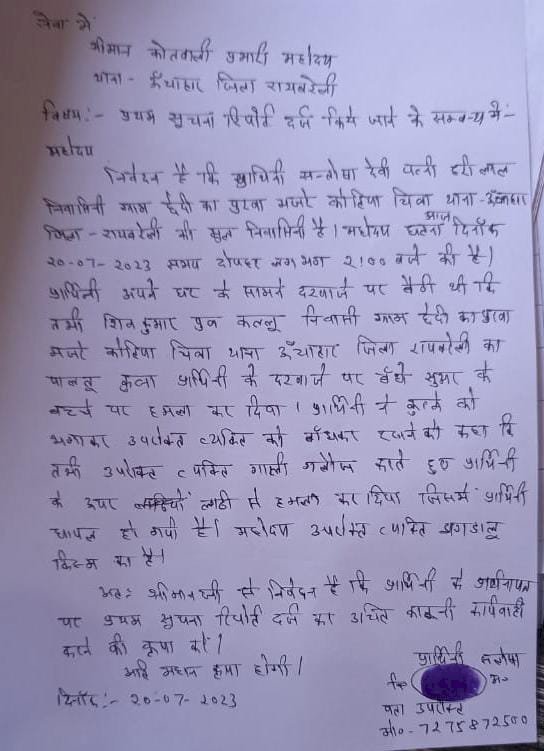 सेवा में
श्रीमान कोतवाली प्रभारी महोदय
थाना - ऊँचाहार जिला रायबरेली
विषय:- प्रथम सूचना रिपोर्ट दर्ज किये जाने के सम्बन्ध में:-
महोदय
निवेदन है कि प्रार्थिनी सन्तोषा देवी पत्नी हरी लाल
निवासिनी ग्राम हेदी का पुरवा मजरे कोटिया चित्रा थाना - ऊँचाहार
जिला - रायबरेली की मूल निवासिनी है। महोदय घटना आज दिनाँक
20-07-2023 समय दोपहर लगभग 2:00 बजे की है।
प्रार्थिनी अपने घर के सामने दरवाजे पर बैठी थी कि
तभी शिव कुमार पुत्र कल्लू निवासी ग्राम हेदी का पुरवा
मजरे कोटिया चित्रा थाना ऊँचाहार जिला रायबरेली का
पालतू कुत्ता प्रार्थिनी के दरवाजे पर बँधे सुअर के
बच्चे पर हमला कर दिया। प्रार्थिनी ने कुत्ते को
भगाकर उपरोक्त व्यक्ति को बाँधकर रखने को कहा कि
तभी उपरोक्त व्यक्ति गाली गलौज करते हुए प्रार्थिनी
के ऊपर लाठी से हमला कर दिया जिसमें प्रार्थिनी
घायल हो गयी है। महोदय उपरोक्त व्यक्ति झगडालू
किस्म का है।
अतः श्रीमान जी से निवेदन है कि प्रार्थिनी के प्रार्थनापत्र
पर प्रथम सूचना रिपोर्ट दर्ज कर उचित कानूनी कार्यवाही
करने की कृपा करें।
अति महान कृपा होगी।
दिनाँक:- 20-07-2023
प्रार्थिनी सन्तोषा
नि० अ०
पता उपरोक्त
मो०- 7275872500